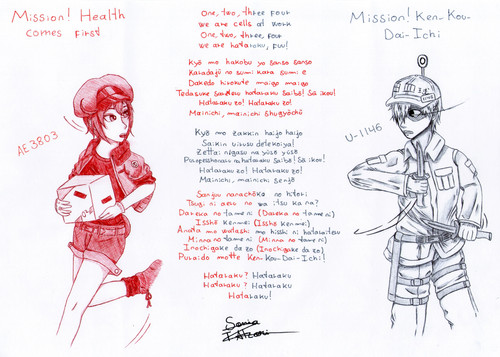 Mission! Health
comes first
AE3803
One, two, three four
we are cells at work
One, two, three, four
we are hataraku, fuu!
Kyō mo hakobu yo sanso sanso
Karadajū no sumi kara sumi e
Dakedo hirokute maigo maigo
Hataraku zo! Hataraku zo!
Mainichi, mainichi Shugyōchū
Kyō mo zakkin haijo haijo
Saikin uirusu detekoiya!
Hataraku zo! Hataraku zo!
Mainichi, mainichi senjō
Sanjuu nanachōko no hitori
Tsugi ni aeru no wa itsu ka na?
Dareka no tame ni (Dareka no tame ni)
Issho kenmei (Issho kenmei)
Anata mo watashi mo hisshi ni hataraiteru
Minna no tame ni (Minna no tame ni)
Inochigake da zo (Inochigake da zo)
Puraido motte Ken-Kou-Dai-Ichi!
Hataraku? Hataraku
Hataraku? Hataraku
Hataraku!
Mission! Ken-Kou-
Dai-Ichi
U-1146